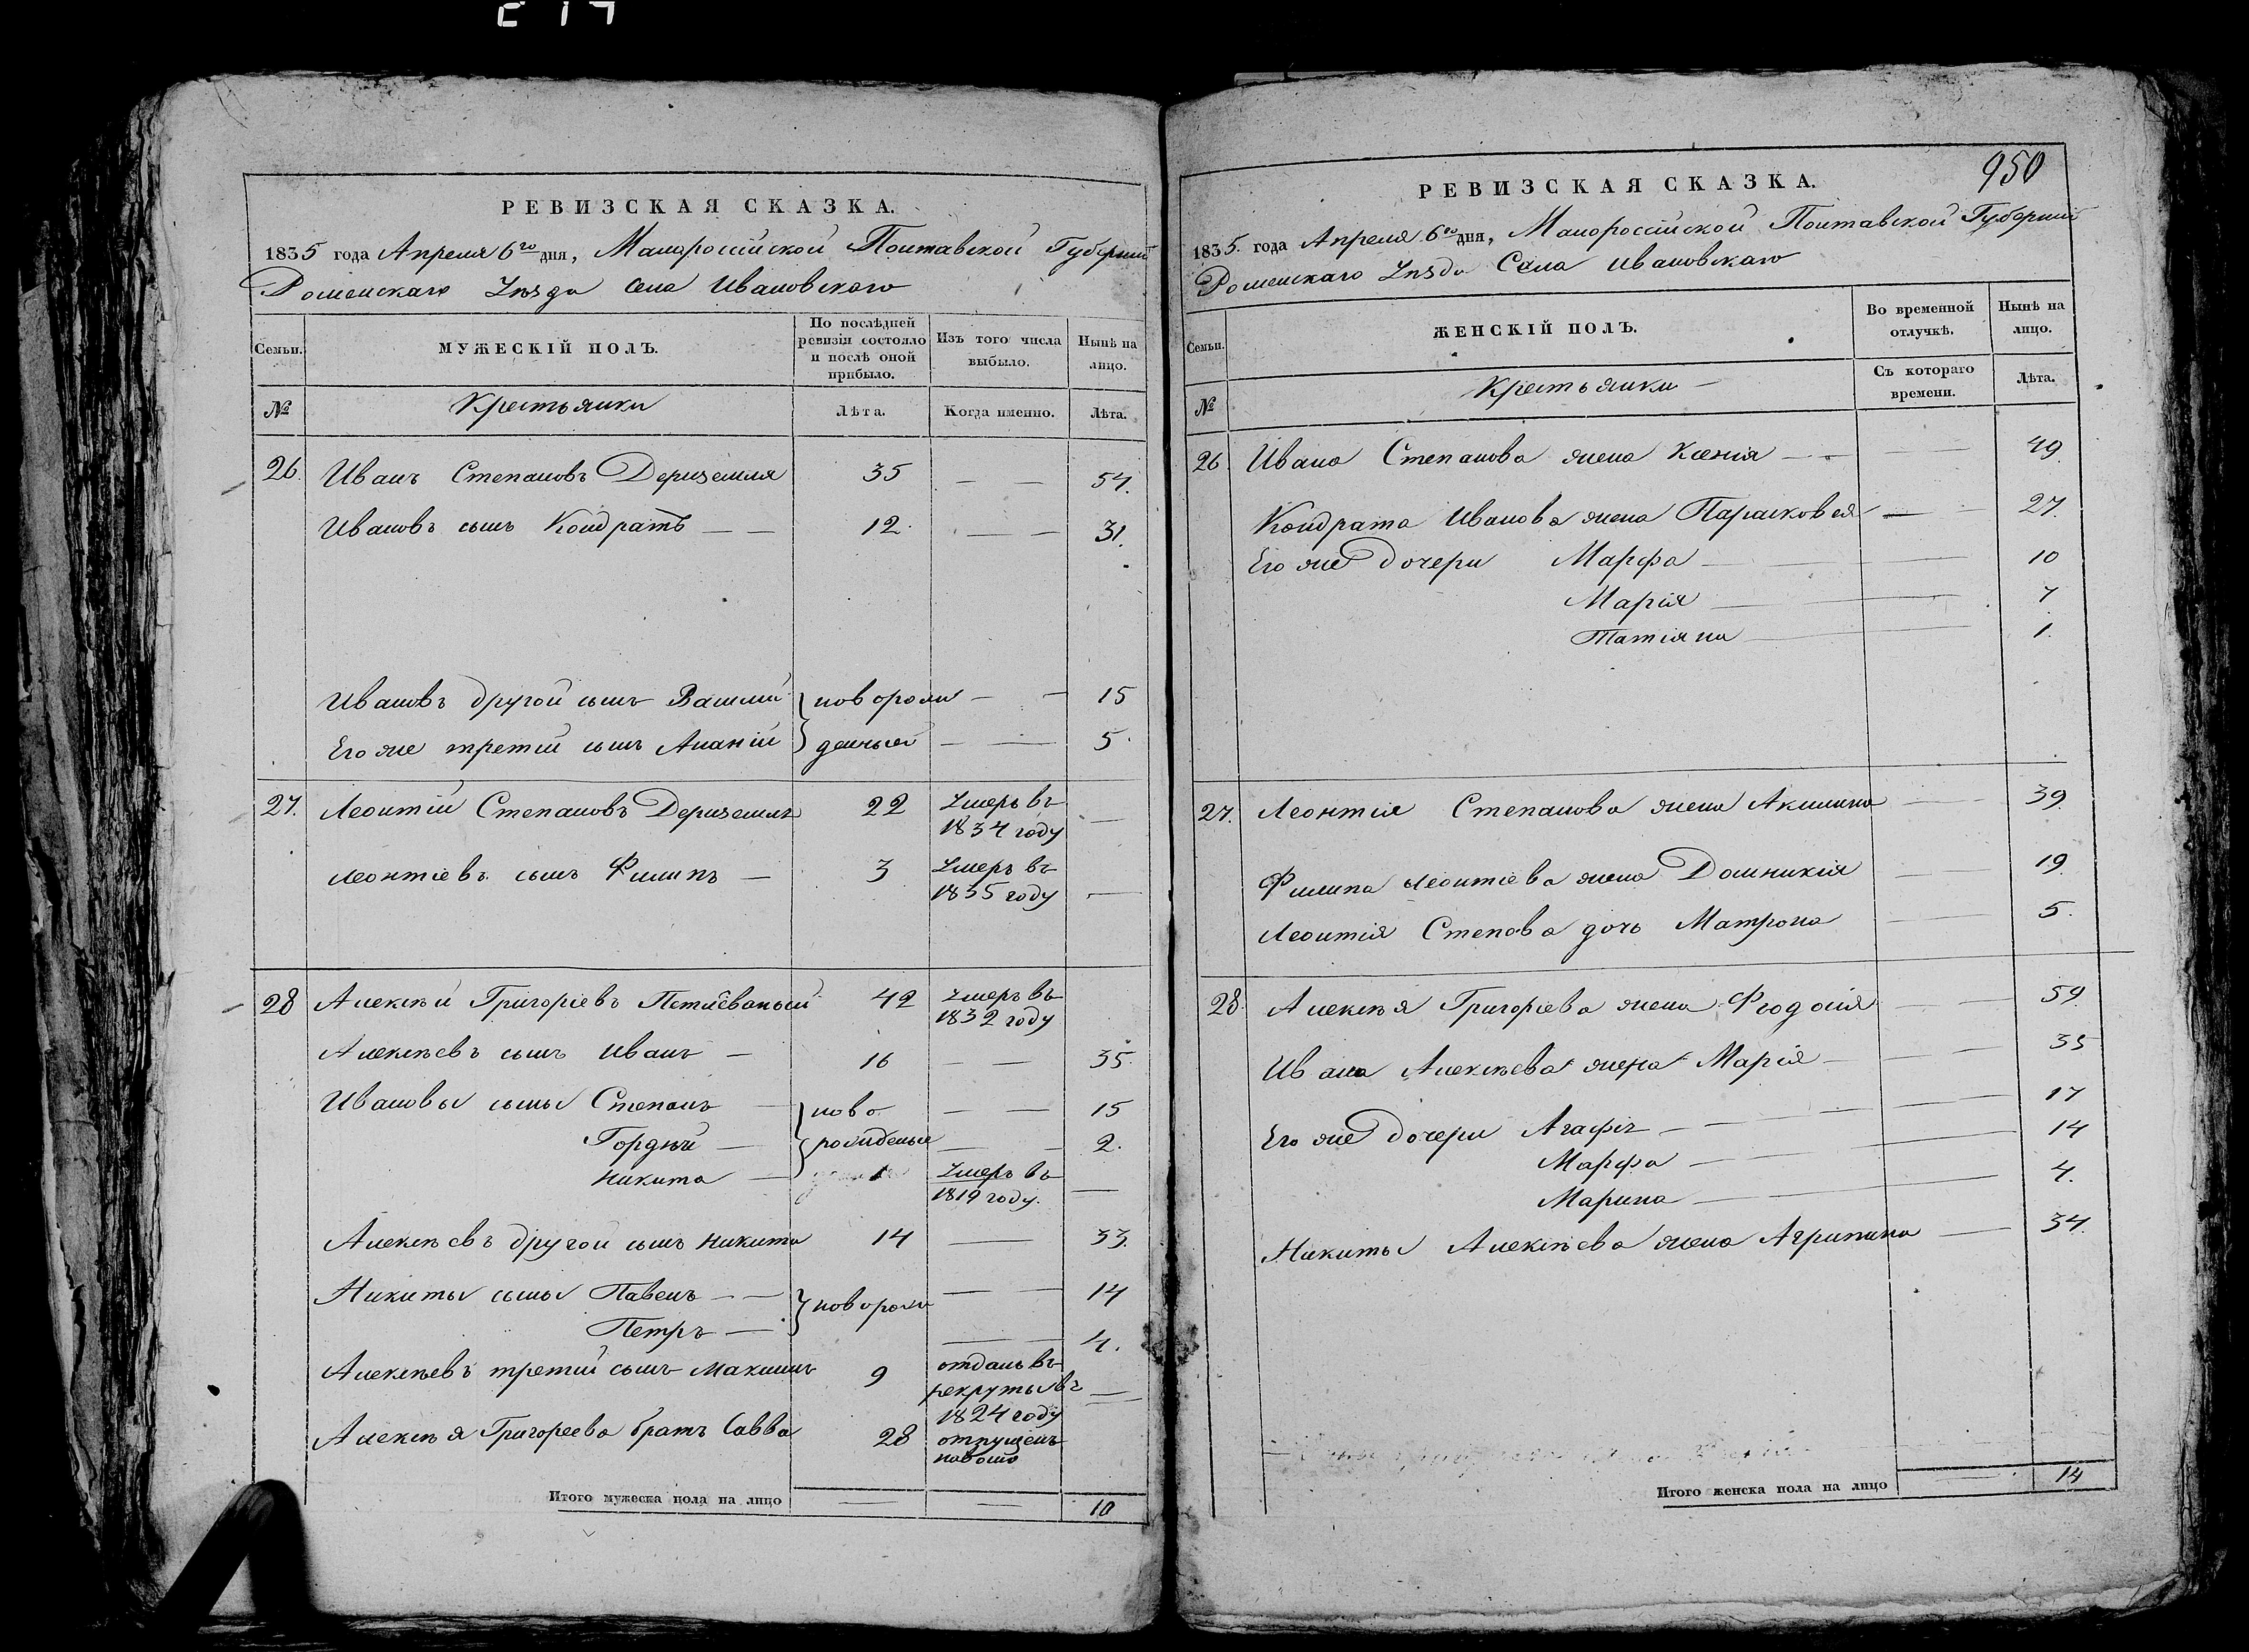 РЕВИЗСКАЯ СКАЗКА.
1835 года Апреля 6го дня, Малороссiйской Полтавской Губернiи
Роменскаго Уѣзда Села Ивановскаго
Семьи.
МУЖЕСКIЙ ПОЛЪ.
По послѣдней ревизiи состояло и послѣ оной прибыло.
Изъ того числа выбыло.
Нынѣ на лицо.
№
Крестьянки
Лѣта.
Когда именно.
Лѣта.
26. Иванъ Степановъ Дериземля 35 — — 54.
Ивановъ сынъ Кондратъ — — 12. — — 31.
Ивановъ другой сынъ Василий новорож — — 15
Его же третiй сынъ Ананiй денные — — 5.
27. Леонтiй Степановъ Дериземля 22 Умеръ въ —
1834 году
Леонтiевъ сынъ Филипъ — 3 Умеръ въ
1835 году —
28 Алексѣй Григорiевъ 42 Умеръ въ
1832 году
Алексѣевъ сынъ Иванъ — 16 — — 35.
Ивановы сыны Степанъ — ново — — 15
Гордѣй — рожденые — — 2.
Никита — 1 Умеръ въ
1819 году. —
Алексѣевъ другой сынъ Никита 14 — 33.
Никиты сыны Павелъ — — новорож — — 14
Петръ — — — 4.
Алексѣевъ третiй сынъ Максимъ 9 отданъ въ
рекруты въ —
1824 году
Алексѣя Григореева братъ Савва 28 отпущенъ
наволю
Итого мужеска пола на лицо — — 10
950
РЕВИЗСКАЯ СКАЗКА.
1835. года Апреля 6го дня, Малороссiйской Полтавской Губернiи
Роменскаго Уѣзда Села Ивановскаго
Семьи.
ЖЕНСКIЙ ПОЛЪ.
Во временной отлучкѣ.
Нынѣ на лицо.
№
Крестьянки —
Съ котораго времени.
Лѣта.
26 Ивана Степанова жена Ксенiя — — — 49.
Кондрата Иванова жена Парасковея — — 27.
Его же дочери Марфа — — 10
Марiя — — 7
Татiяна — — 1.
27. Леонтiя Степанова жена Акилина — 39.
Филипа Леонтiева жена Домникiя — 19.
Леонтiя Степова дочь Матрона — 5.
28. Алексѣя Григорiева жена Фѣодосiя — 59.
Ивана Алексѣева жена Марiя — — 35
Его же дочери Агафiя — — 17
Марфа — — 14
Марина — — 4.
Никиты Алексѣева жена Агрипина — 34.
Итого женска пола на лицо — 14